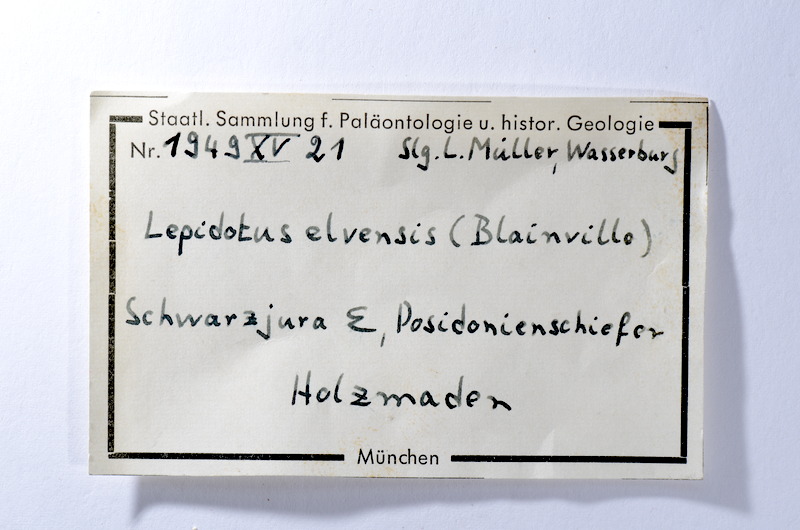 Staatl. Sammlung f. Paläontologie u. histor. Geologie
Nr. 1949 XV 21 Slg. L. Müller, Wasserburg
Lepidotus elvensis (Blainville)
Schwarzjura Ɛ, Posidonienschiefer
Holzmaden
München